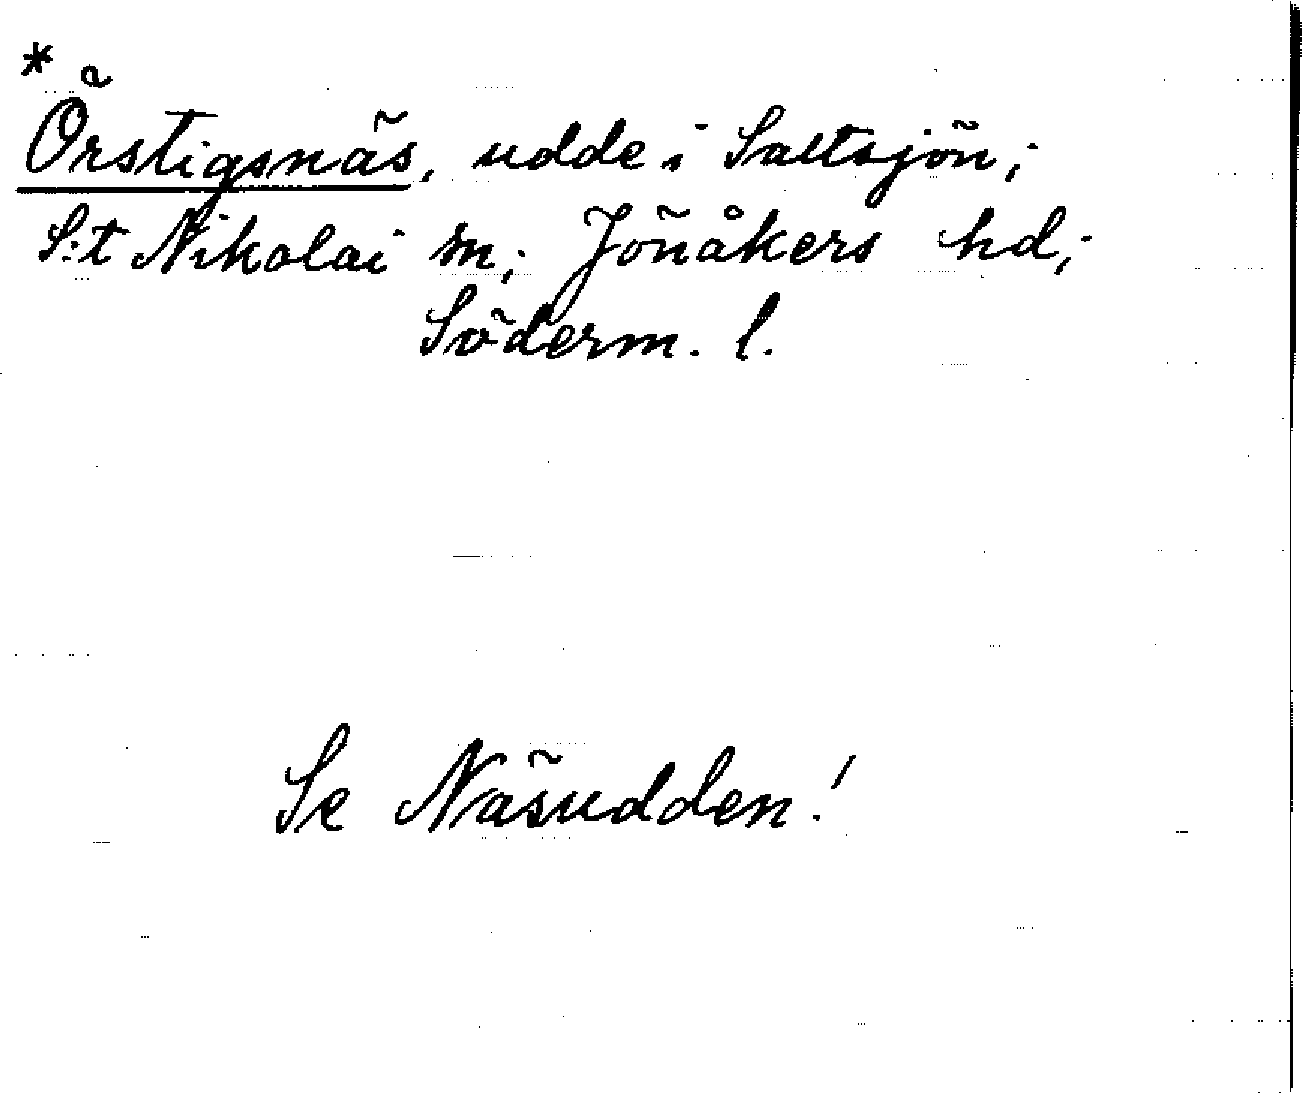 *
Örstigsnäs, udde i Saltsjön;
S:t Nikolai sn; Jönåkers hd;
Söderm. l.
Se Näsudden!